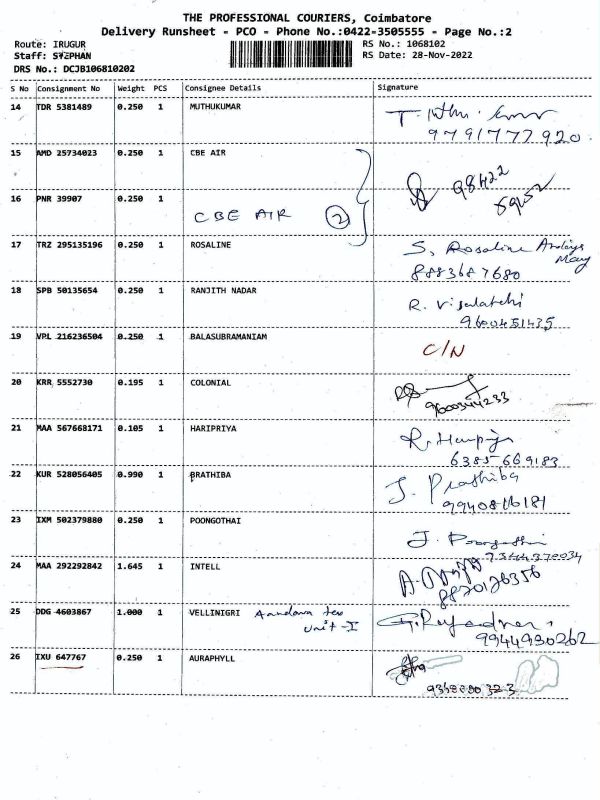 THE PROFESSIONAL COURIERS, Coimbatore
Delivery Runsheet - PCO - Phone No.:0422-3505555 - Page No.:2
Route: IRUGUR RS No.: 1068102
Staff: STEPHAN RS Date: 28-Nov-2022
DRS No.: DCJB106810202
S No Consignment No Weight PCS Consignee Details Signature
14 TDR 5381489 0.250 1 MUTHUKUMAR
9791777920
15 AMD 25734023 0.250 1 CBE AIR
16 PNR 39907 0.250 1
CBE AIR 2
17 TRZ 295135196 0.250 1 ROSALINE S. Rosaline
8883687680
18 SPB 50135654 0.250 1 RANJITH NADAR R. Visalatchi
9600451435
19 VPL 216236504 0.250 1 BALASUBRAMANIAM C/N
20 KRR 5552730 0.195 1 COLONIAL
9600344233
21 MAA 567668171 0.105 1 HARIPRIYA
6385669183
22 KUR 528056405 0.990 1 BRATHIBA J. Prathiba
9940816181
23 IXM 502379880 0.250 1 POONGOTHAI J. Poongothai
24 MAA 292292842 1.645 1 INTELL
8870126356
25 DDG 4603867 1.000 1 VELLINIGRI
unit-I
9944930262
26 IXU 647767 0.250 1 AURAPHYLL